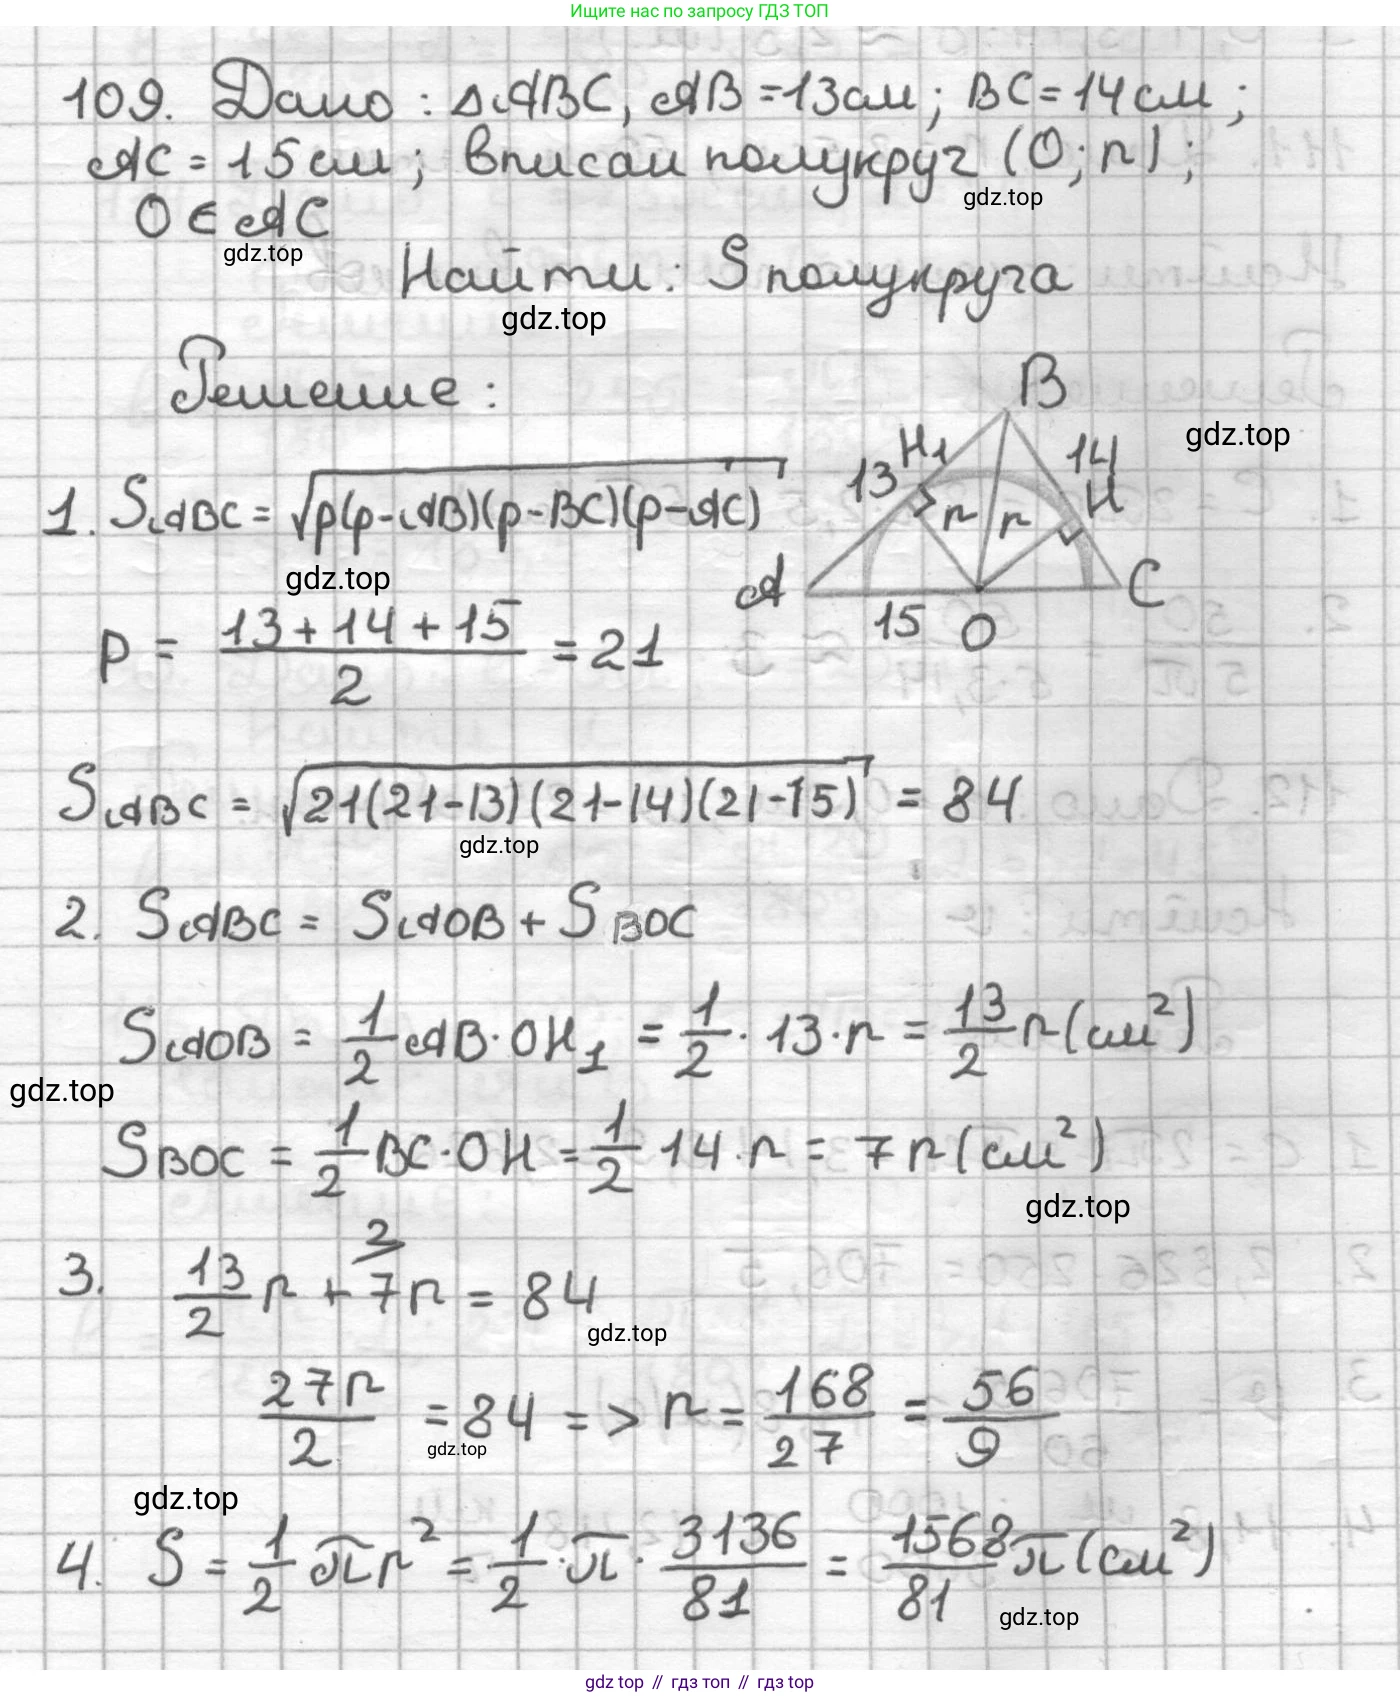 Ищите нас по запросу ГДЗ ТОП
109. Дано: △ABC, AB=13см; BC=14см;
AC=15см; вписан полукруг (O; r);
gdz.top
O∈AC
gdz.top
Найти: S полукруга
gdz.top
Решение:
B
gdz.top
H₁
13
14
H
r
r
A
C
15
O
1. S ABC = √p(p-AB)(p-BC)(p-AC)
gdz.top
p = (13+14+15)/2 = 21
S ABC = √21(21-13)(21-14)(21-15) = 84
gdz.top
2. S ABC = S AOB + S BOC
S AOB = 1/2 AB·OH₁ = 1/2 · 13 · r = 13/2 r (см²)
gdz.top
S BOC = 1/2 BC·OH = 1/2 14·r = 7r (см²)
gdz.top
2
3. 13/2 r + 7r = 84
gdz.top
27r/2 = 84 => r = 168/27 = 56/9
gdz.top
gdz.top
4. S = 1/2 πr² = 1/2 · π · 3136/81 = 1568/81 π (см²)
gdz.top
gdz top // гдз топ // gdz top